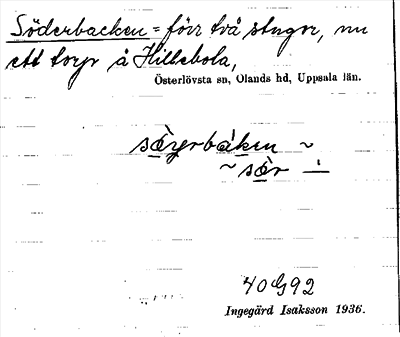 Söderbacken = förr två stugor, nu
ett torp å Hillebola,
Österlövsta sn, Olands hd, Uppsala län.
~
~ sør
40 G 92
Ingegärd Isaksson 1936.